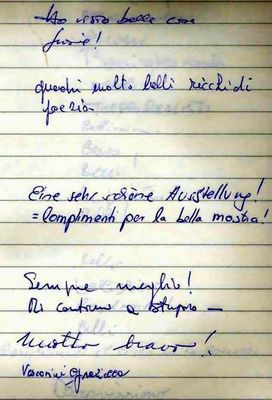 Ho visto belle cose
grazie!
quadri molto belli ricchi di
poesia
Eine sehr schöne Ausstellung!
= Complimenti per la bella mostra!
Sempre meglio!
Di continuo a
Molto bravo!